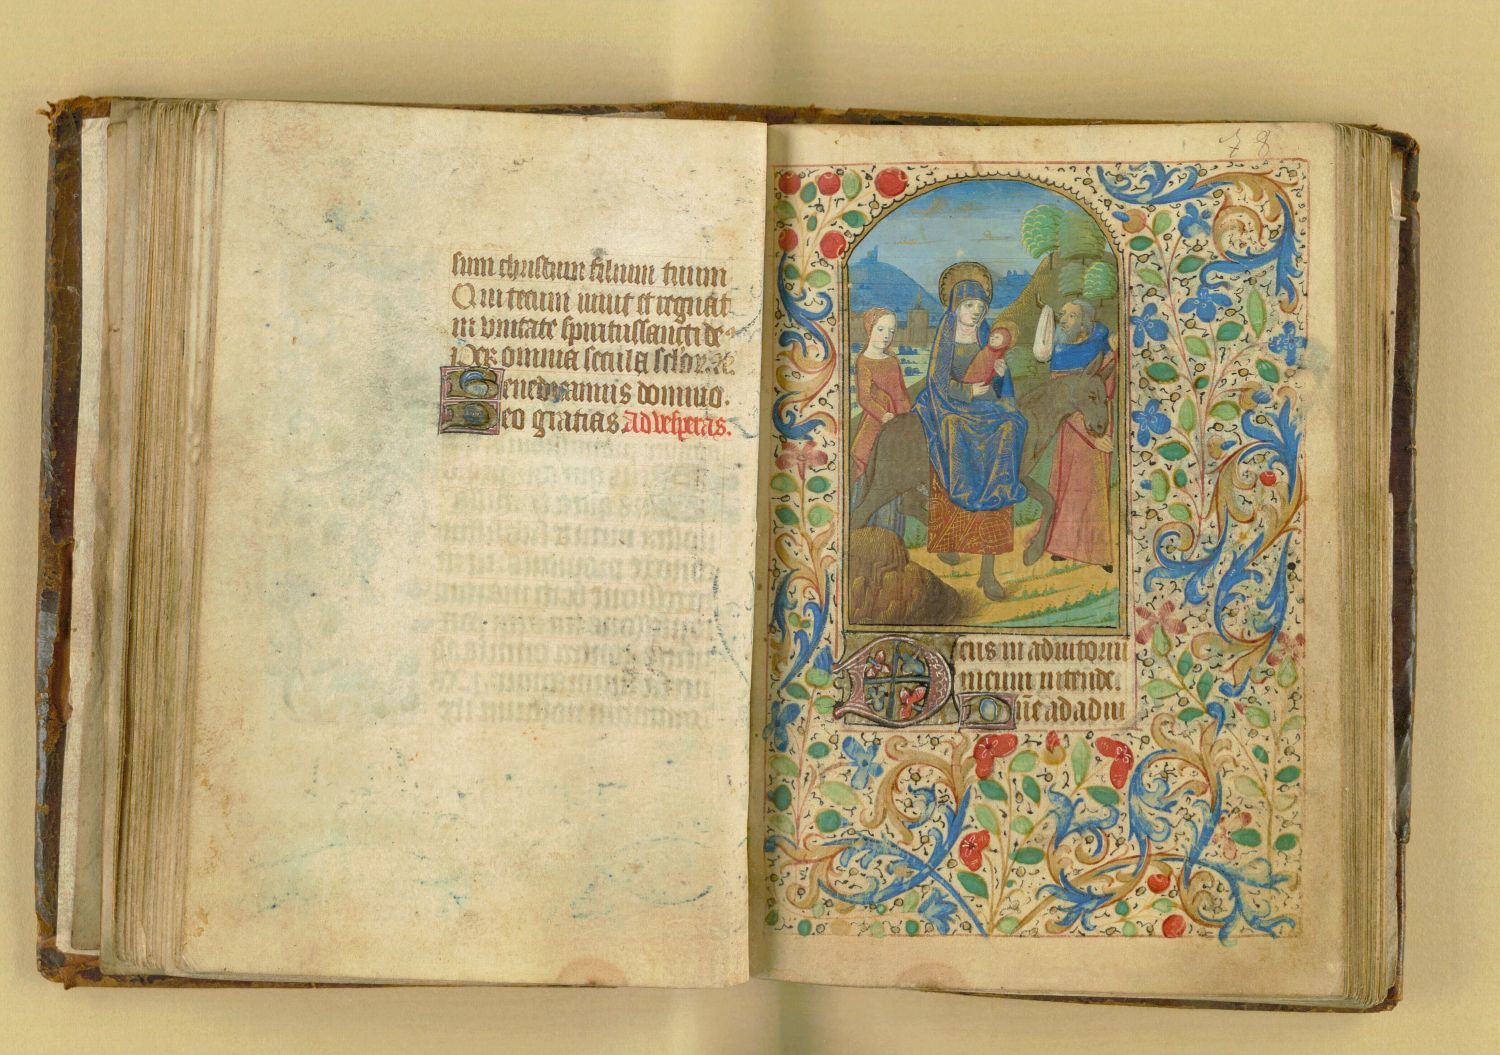 sum christum filium tuum
Qui tecum uiuit et regnat
in vnitate spiritussancti de⁹
Per omnia secula seculor. A.
Benedicamus domino.
Deo gratias Ad vesperas.
78
Deus in adiutoriu
meum intende.
Dn̄e ad adiu